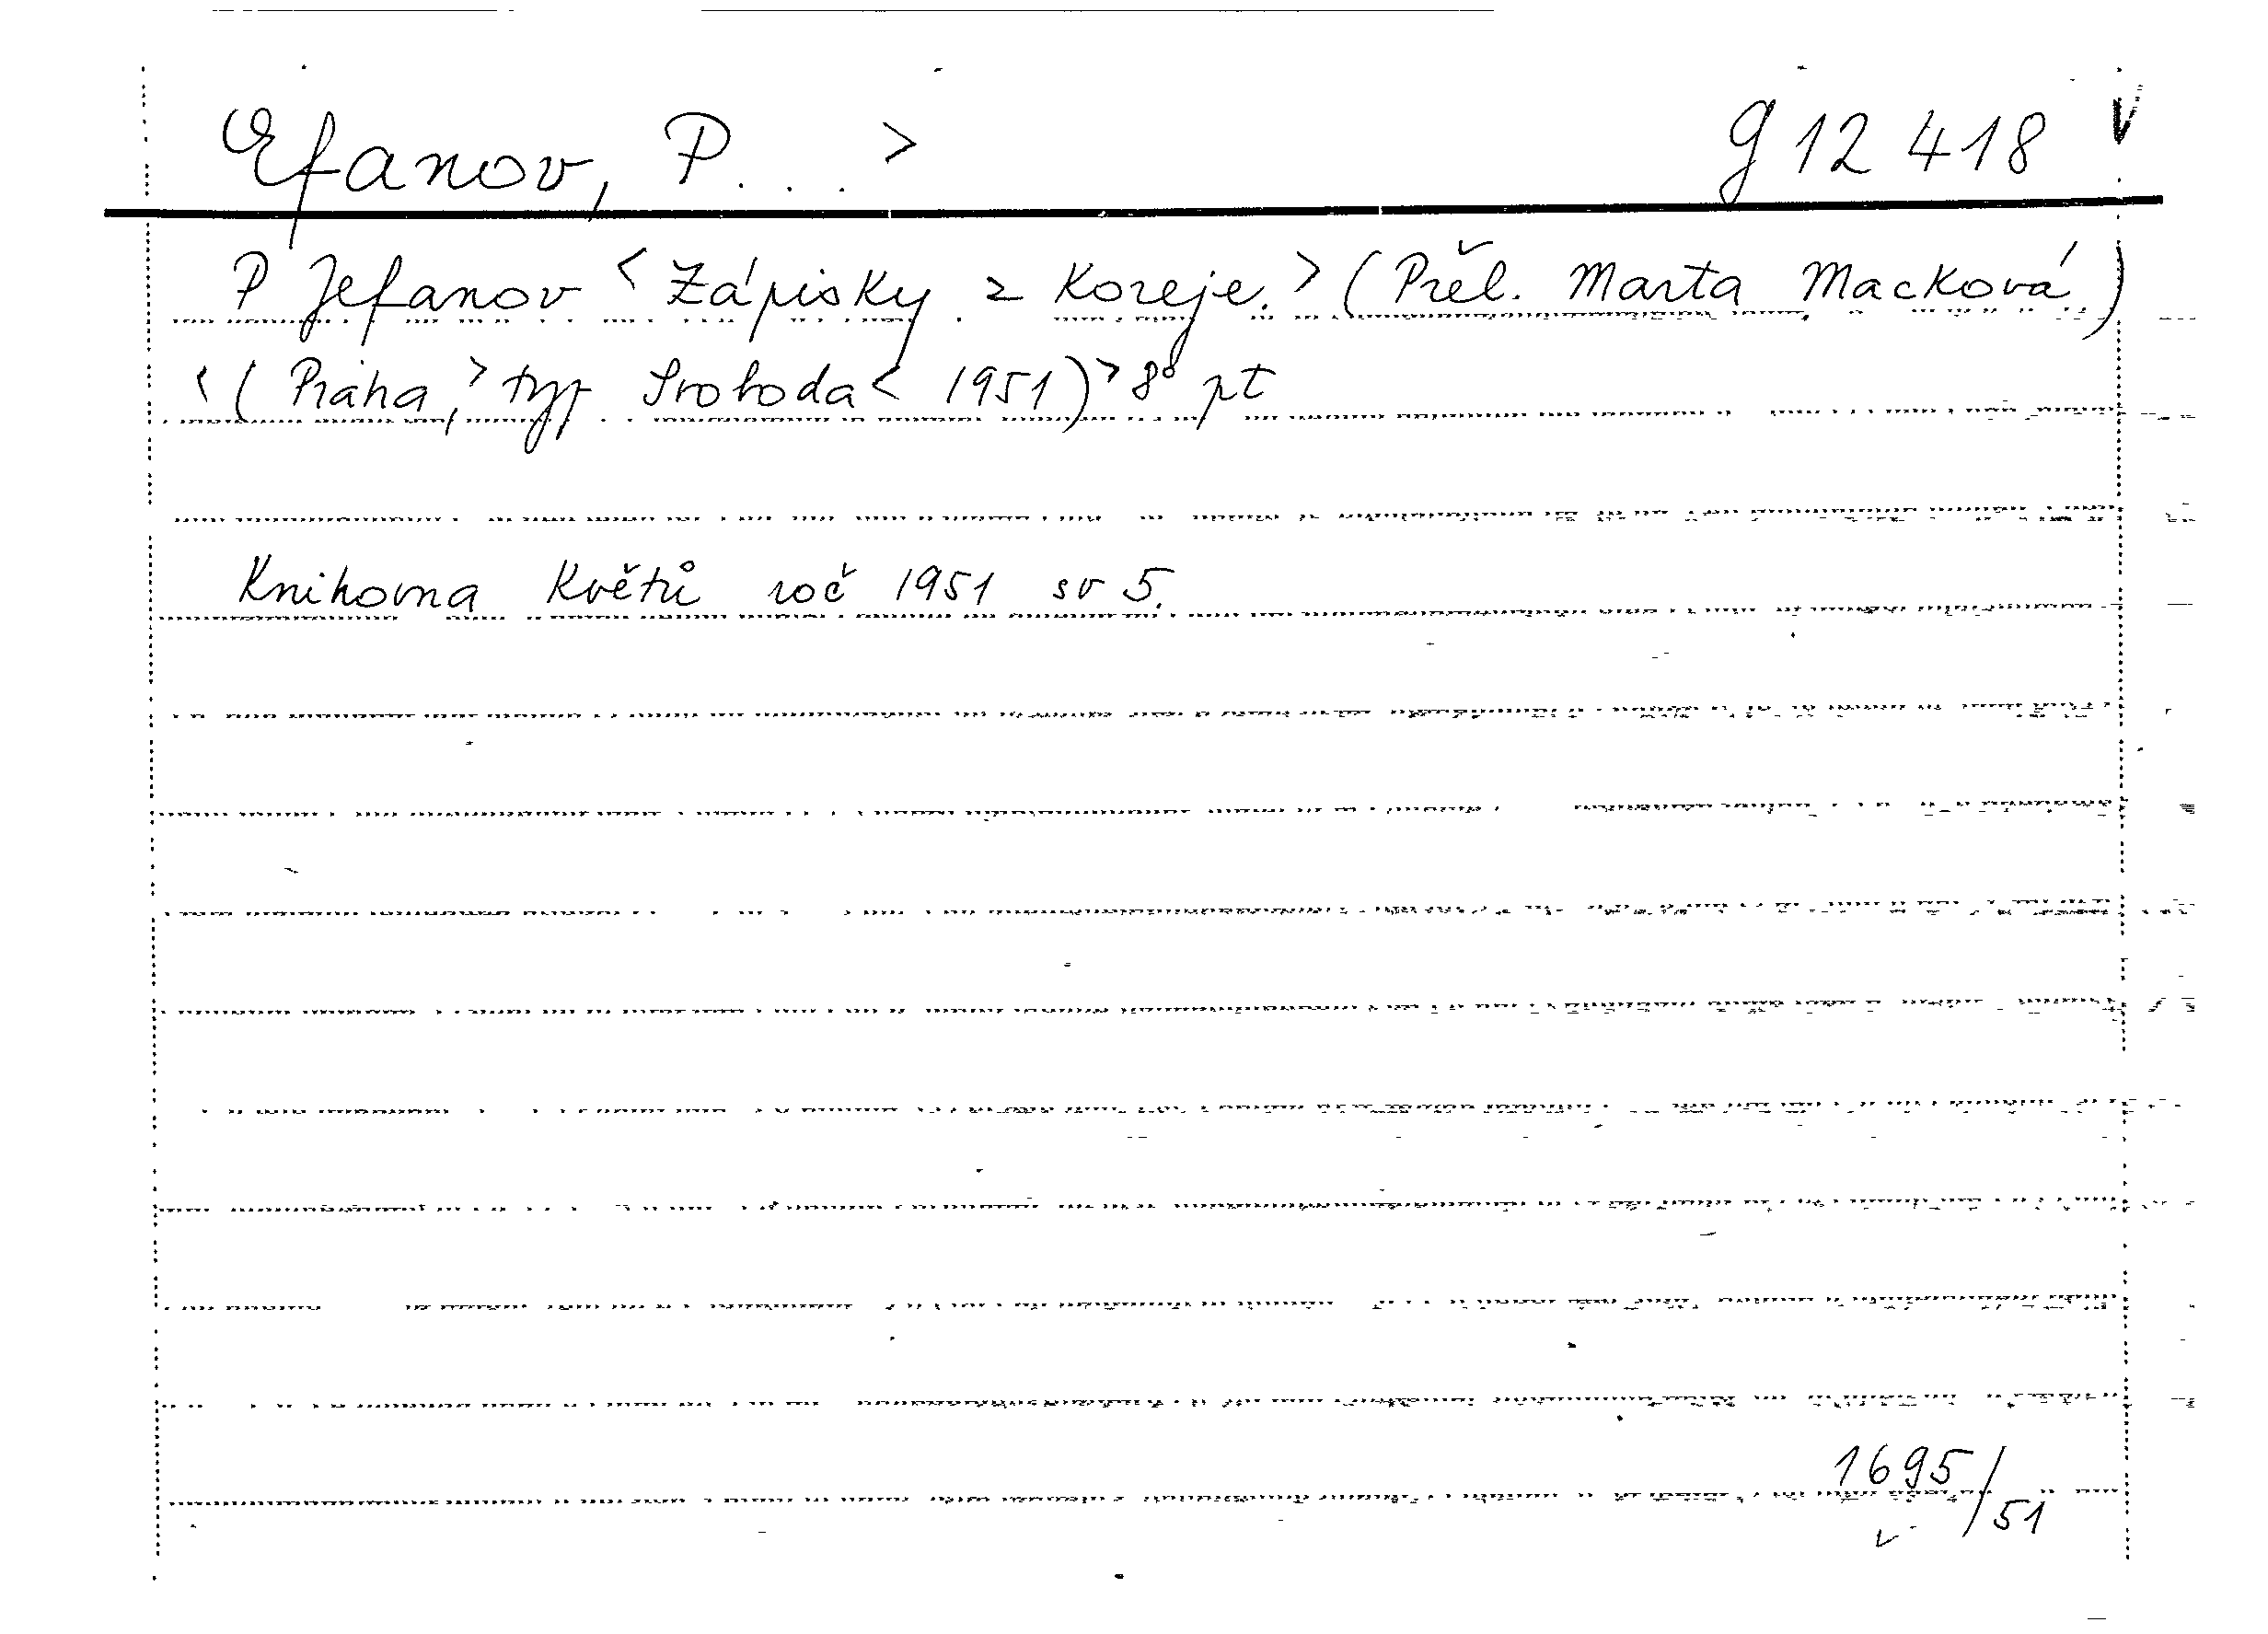 Efanov, P... > g 12 418
P Jefanov < Zápisky z Koreje. > (Přel. Marta Macková.)
< (Praha, > typ Svoboda < 1951) > 8° pt
Knihovna Květů roč 1951 sv 5.
1695/51